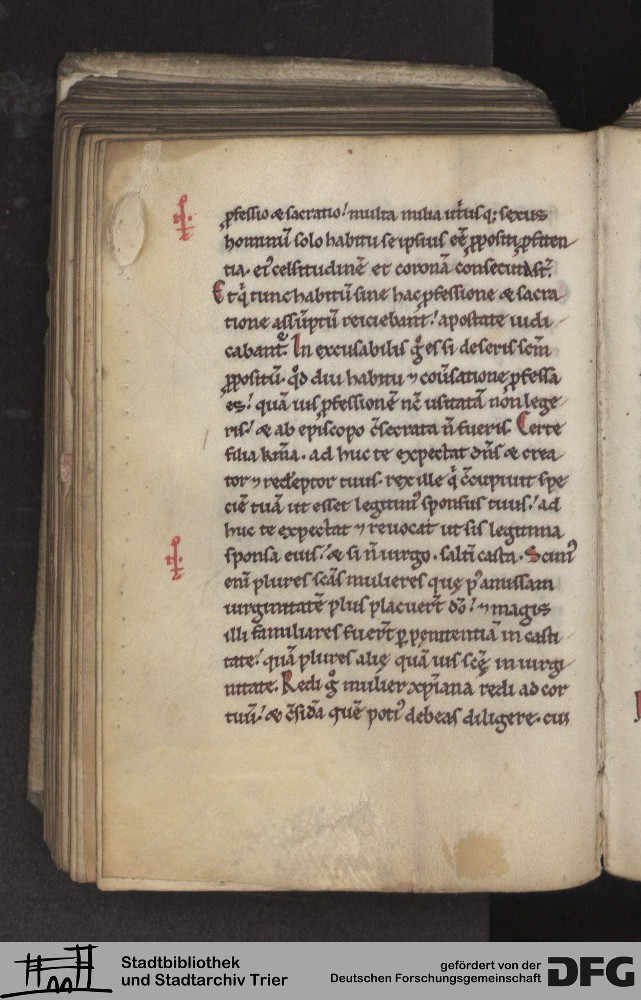 ꝓfessio & sacratio! multa milia utriusq; sexus
hominũ solo habitu se ipsius eẽ ꝓpositi ꝓfiten
tia. et celsitudinẽ et coronã consecuta st̃.
Et q̃ tunc habitũ sine hac ꝓfessione & sacra
tione assũptũ reiciebant! apostate iudi
cabant̃. In excusabilis gͦ es si deseris sc̃m
ꝓpositũ. qd̃ diu habitu ⁊ cou̅satione ꝓfessa
es! quã uis ꝓfessionẽ nc̃ usitatã nõn lege
ris! & ab episcopo c̃secrata ñ fueris. Certe
filia km̃a. ad huc te expectat dñs & crea
tor ⁊ redẽptor tuus. rex ille q̃ c̃cupiuit spe
ciẽ tuã. ut esset legitim᷒ sponsus tuus! ad
huc te expectat ⁊ reuocat ut sis legitima
sponsa eius! & si ñ uirgo. saltĩ casta. Scim᷒
enĩ plures sc̃as mulieres quę p᷒ amissam
uirginitatẽ plus placuer̃t dõ! ⁊ magis
illi familiares fuer̃t ꝑ pęnitentiã in casti
tate! quã plures alię quã uis sc̃ę in uirgi
nitate. Redi gͦ mulier xp̃iana redi ad cor
tuũ! & c̃sid̃a quẽ poti᷒ debeas diligere. cui
Stadtbibliothek
und Stadtarchiv Trier
gefördert von der
Deutschen Forschungsgemeinschaft
DFG